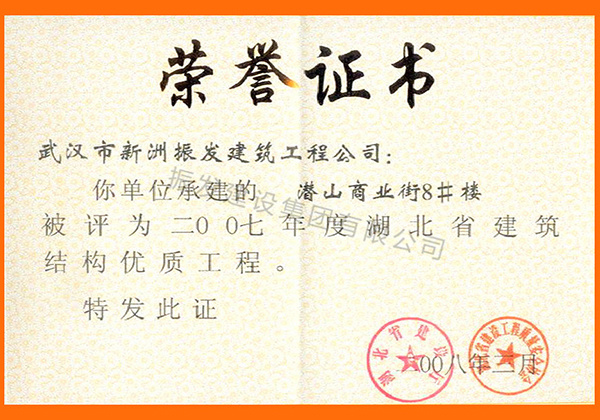 荣誉证书
武汉市新洲振发建筑工程公司：
你单位承建的 潜山商业街8#楼
被评为二00七年度湖北省建筑
结构优质工程。
特发此证
振发建设集团有限公司
湖北省建设厅
二00八年三月